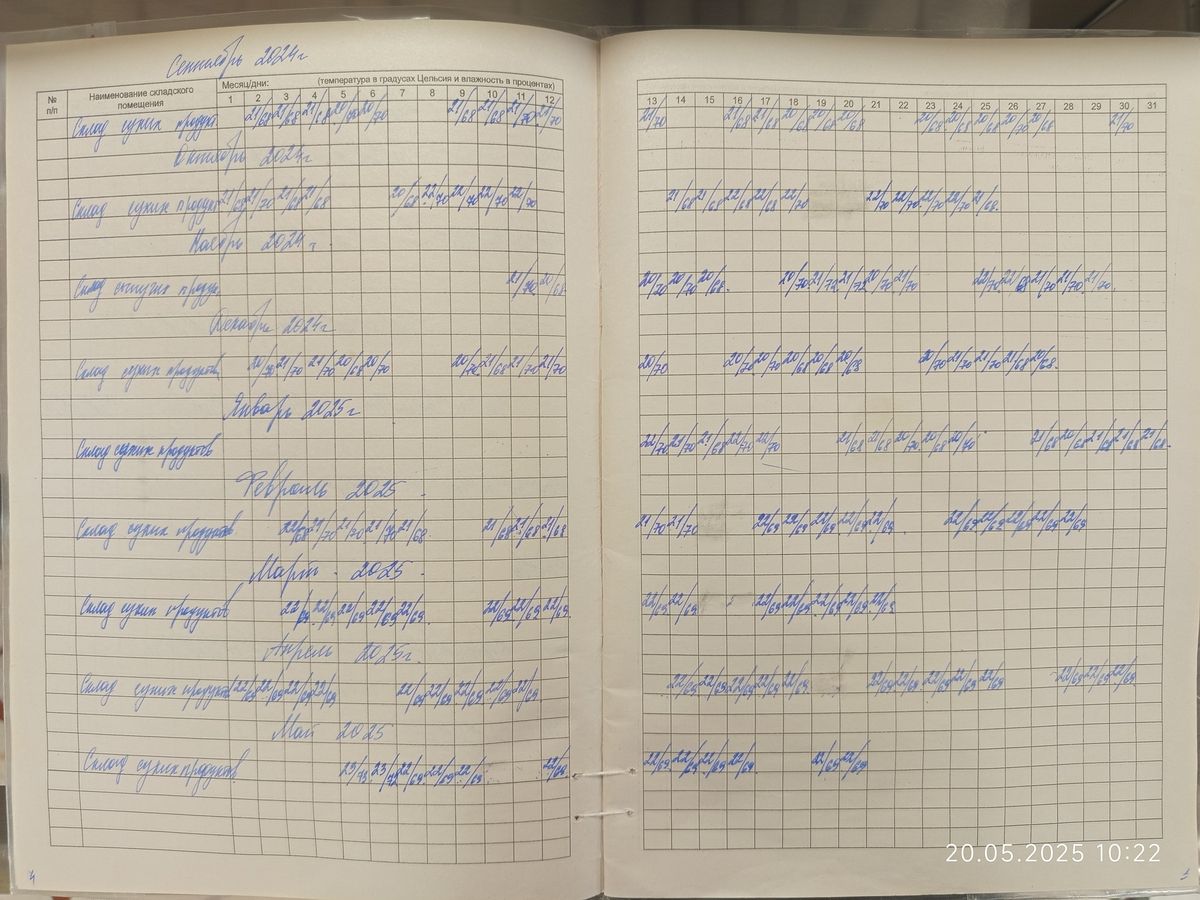 Сентябрь 2024г
№ п/п
Наименование складского помещения
Месяц/дни: (температура в градусах Цельсия и влажность в процентах)
1 2 3 4 5 6 7 8 9 10 11 12 13 14 15 16 17 18 19 20 21 22 23 24 25 26 27 28 29 30 31
Склад сухих продукт 21/68 21/68 21/68 20/70 20/70 21/68 21/68 21/70 21/70 21/70 21/68 21/68 20/68 20/68 20/68 20/68 20/68 20/68 20/70 20/68 21/70
Октябрь 2024г
Склад сухих продукт 21/68 21/70 21/68 21/68 20/68 22/70 22/70 22/70 22/70 21/68 21/68 22/68 22/68 22/70 22/70 22/70 22/70 22/70 21/68
Ноябрь 2024г.
Склад сыпучих продук. 21/70 20/68 20/70 20/70 20/68 20/70 21/72 21/72 20/70 21/70 22/70 22/68 21/70 21/70 21/70
Декабрь 2024г
Склад сухих продуктов 20/70 21/70 21/70 20/68 20/70 20/70 21/68 21/70 21/70 20/70 20/70 20/70 20/68 20/68 20/68 20/70 21/70 21/70 21/68 20/68
Январь 2025г
Склад сухих продуктов 22/70 21/70 21/68 22/70 22/70 21/68 21/68 20/70 20/68 20/70 21/68 20/68 21/68 21/68 21/68
Февраль 2025.
Склад сухих продуктов 22/68 21/70 21/70 21/70 21/68 21/68 21/68 21/68 21/70 21/70 22/69 22/69 22/69 22/69 22/69 22/69 22/69 22/69 22/69 22/69
Март. 2025.
Склад сухих продуктов 22/69 22/69 22/69 22/69 22/69 22/69 22/69 22/69 22/69 22/69 22/69 22/69 22/69 22/69 22/69
Апрель 2025г.
Склад сухих продуктов 22/69 22/69 22/69 22/69 22/69 22/69 22/69 22/69 22/69 22/69 22/69 22/69 22/69 22/69 22/69 22/69 22/69 22/69 22/69 22/69 22/69 22/69
Май 2025
Склад сухих продуктов 23/73 23/72 22/69 22/69 22/69 22/69 22/69 22/69 22/69 22/69 22/69 22/69
20.05.2025 10:22